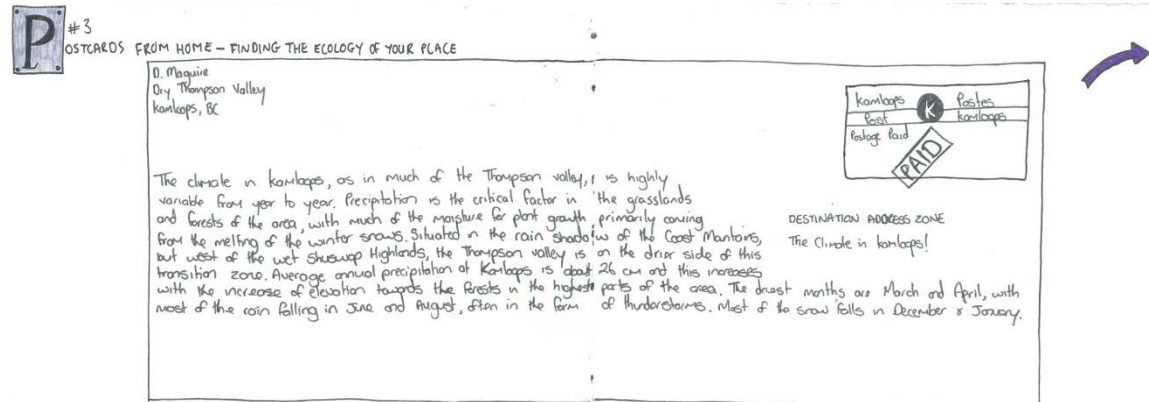 #3
POSTCARDS FROM HOME – FINDING THE ECOLOGY OF YOUR PLACE
D. Maguire
Dry Thompson Valley
Kamloops, BC
Kamloops K Postes
Post Kamloops
Postage Paid
PAID
The climate in Kamloops, as in much of the Thompson valley, is highly
variable from year to year. Precipitation is the critical factor in the grasslands
and forests of the area, with much of the moisture for plant growth primarily coming
from the melting of the winter snows. Situated in the rain shadow of the Coast Mantains,
but west of the wet Shuswap Highlands, the Thompson valley is on the drier side of this
transition zone. Average annual precipitation at Kamloops is about 26 cm and this increases
with the increase of elevation towards the forests in the highest parts of the area. The driest months are March and April, with
most of the rain falling in June and August, often in the form of thunderstorms. Most of the snow falls in December & January.
DESTINATION ADDRESS ZONE
The Climate in Kamloops!